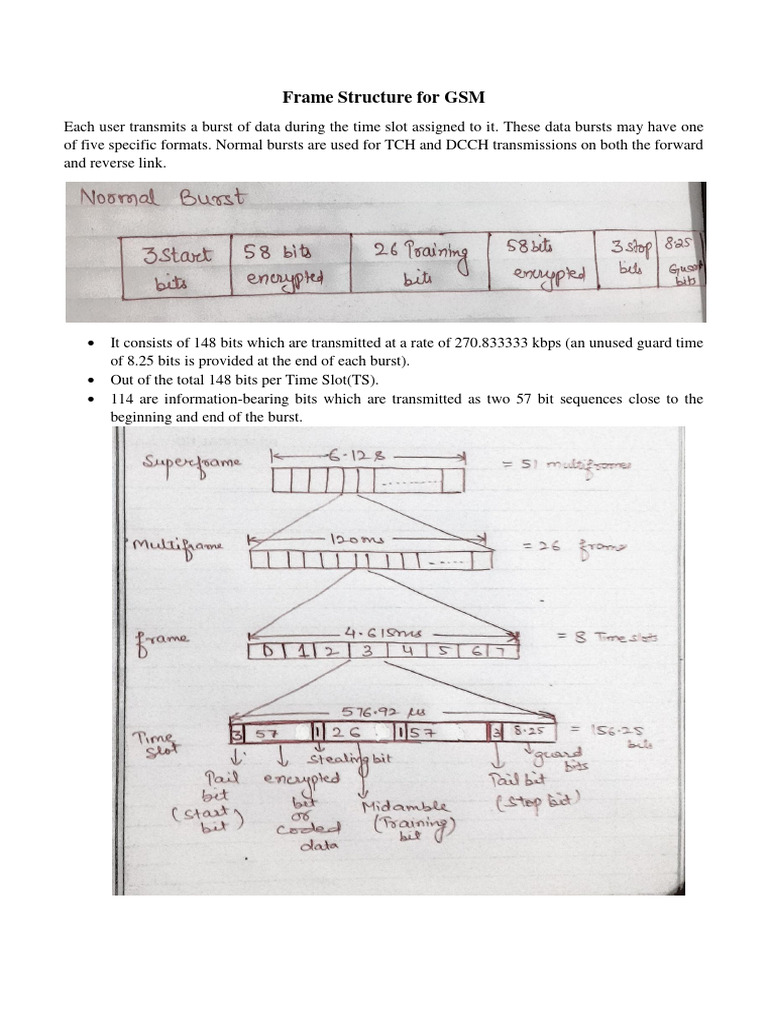 Frame Structure for GSM
Each user transmits a burst of data during the time slot assigned to it. These data bursts may have one
of five specific formats. Normal bursts are used for TCH and DCCH transmissions on both the forward
and reverse link.
Normal Burst
3 Start bits | 58 bits encrypted | 26 Training bits | 58 bits encrypted | 3 stop bits | 8.25 Guard bits
• It consists of 148 bits which are transmitted at a rate of 270.833333 kbps (an unused guard time
of 8.25 bits is provided at the end of each burst).
• Out of the total 148 bits per Time Slot(TS).
• 114 are information-bearing bits which are transmitted as two 57 bit sequences close to the
beginning and end of the burst.
6.12s
Superframe = 51 multiframes
120ms
Multiframe = 26 frame
4.615ms
frame 0 1 2 3 4 5 6 7 = 8 Time slots
576.92 μs
Time slot 3 57 1 26 1 57 3 8.25 = 156.25 bits
Tail bit (Start bit)
encrypted bit or coded data
Stealing bit
Midamble (Training) bit
Tail bit (Stop bit)
guard bits